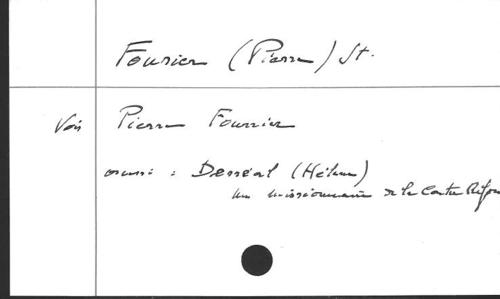 Fourier (Pierre) St.
Voir Pierre Fourier
aussi : Derréal (Hélène)
un missionnaire de la Contre Réfor